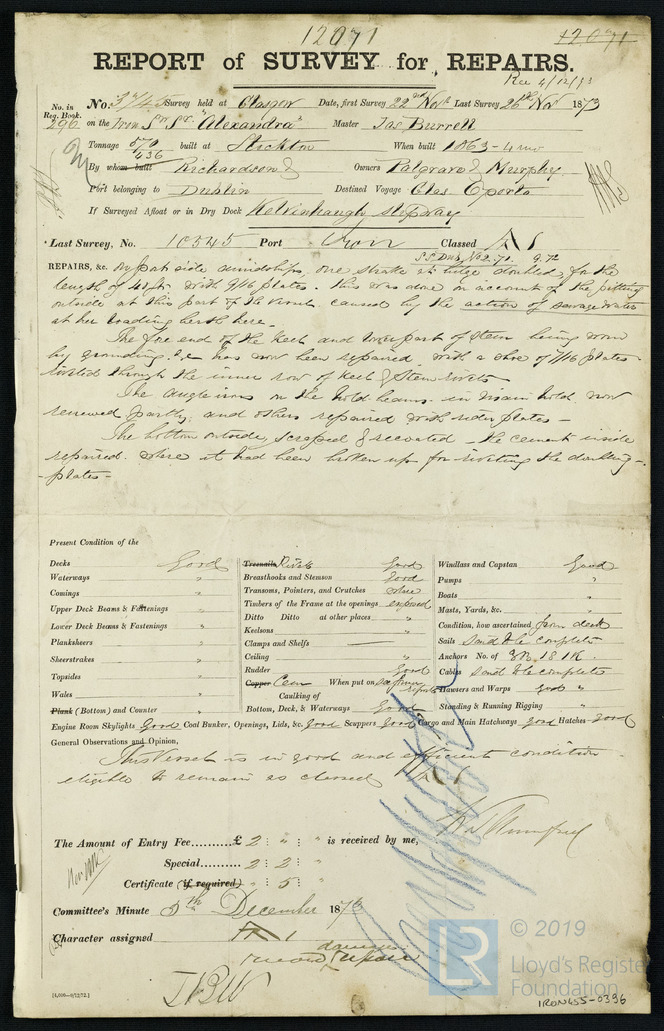 12071
12071
REPORT of SURVEY for REPAIRS.
Rec 4/12/73
No. in Reg. Book. No. 3745 Survey held at Glasgow Date, first Survey 22nd Novr Last Survey 26th Nov 1873
296 on the Iron Sr Sr "Alexandra" Master Jas Burrell
Tonnage 570 / 436 built at Stockton When built 1863-4 mo
By whom built Richardson & Owners Palgrave & Murphy
Port belonging to Dublin Destined Voyage Glas Oporto
If Surveyed Afloat or in Dry Dock Kelvinhaugh slipway
Last Survey, No. 10545 Port Iron Classed A 1
S.S. Dub. No 2. 71. 9.72
REPAIRS, &c. On port side amidships, one strake at bilge doubled, for the
length of with 9/16 plates. This was done on account of the pitting
outside at this part of the vessel, caused by the action of sewage water
at her loading berth here.
The fore end of the Keel and lower part of Stem being worn
by grounding &c has now been repaired with a shoe of plates
riveted through the inner row of Keel & Stem rivets
The angle irons on the hold beams in main hold now
renewed partly, and others repaired with rider plates -
The bottom outside, scraped & recoated - the cement inside
repaired where it had been broken up for riveting the doubling
plates -
Present Condition of the
Decks Good
Waterways "
Comings "
Upper Deck Beams & Fastenings "
Lower Deck Beams & Fastenings "
Planksheers "
Sheerstrakes "
Topsides "
Wales "
Plank (Bottom) and Counter "
Treenails Rivets Good
Breasthooks and Stemson Good
Transoms, Pointers, and Crutches where
Timbers of the Frame at the openings exposed
Ditto Ditto at other places "
Keelsons "
Clamps and Shelfs
Ceiling "
Rudder Good
Copper Cem When put on see former reports
Caulking of
Bottom, Deck, & Waterways Good
Windlass and Capstan Good
Pumps "
Boats "
Masts, Yards, &c. "
Condition, how ascertained from deck
Sails said to be complete
Anchors No. of 3B. 1S 1K
Cables said to be complete
Hawsers and Warps good "
Standing & Running Rigging "
Engine Room Skylights Good Coal Bunker, Openings, Lids, &c. Good Scuppers Good Cargo and Main Hatchways good Hatches good
General Observations and Opinion,
This vessel is in good and efficient condition
eligible to remain as classed A 1
The Amount of Entry Fee..........£ 2 : " : " is received by me,
Special.......... 2 : 2 : "
Certificate (if required) " : 5 : "
Committee's Minute 5th December 1873
Character assigned A 1
damage
record repair
[1,000—6/12/72.]
LR
© 2019
Lloyd's Register
Foundation
IRON455-0396